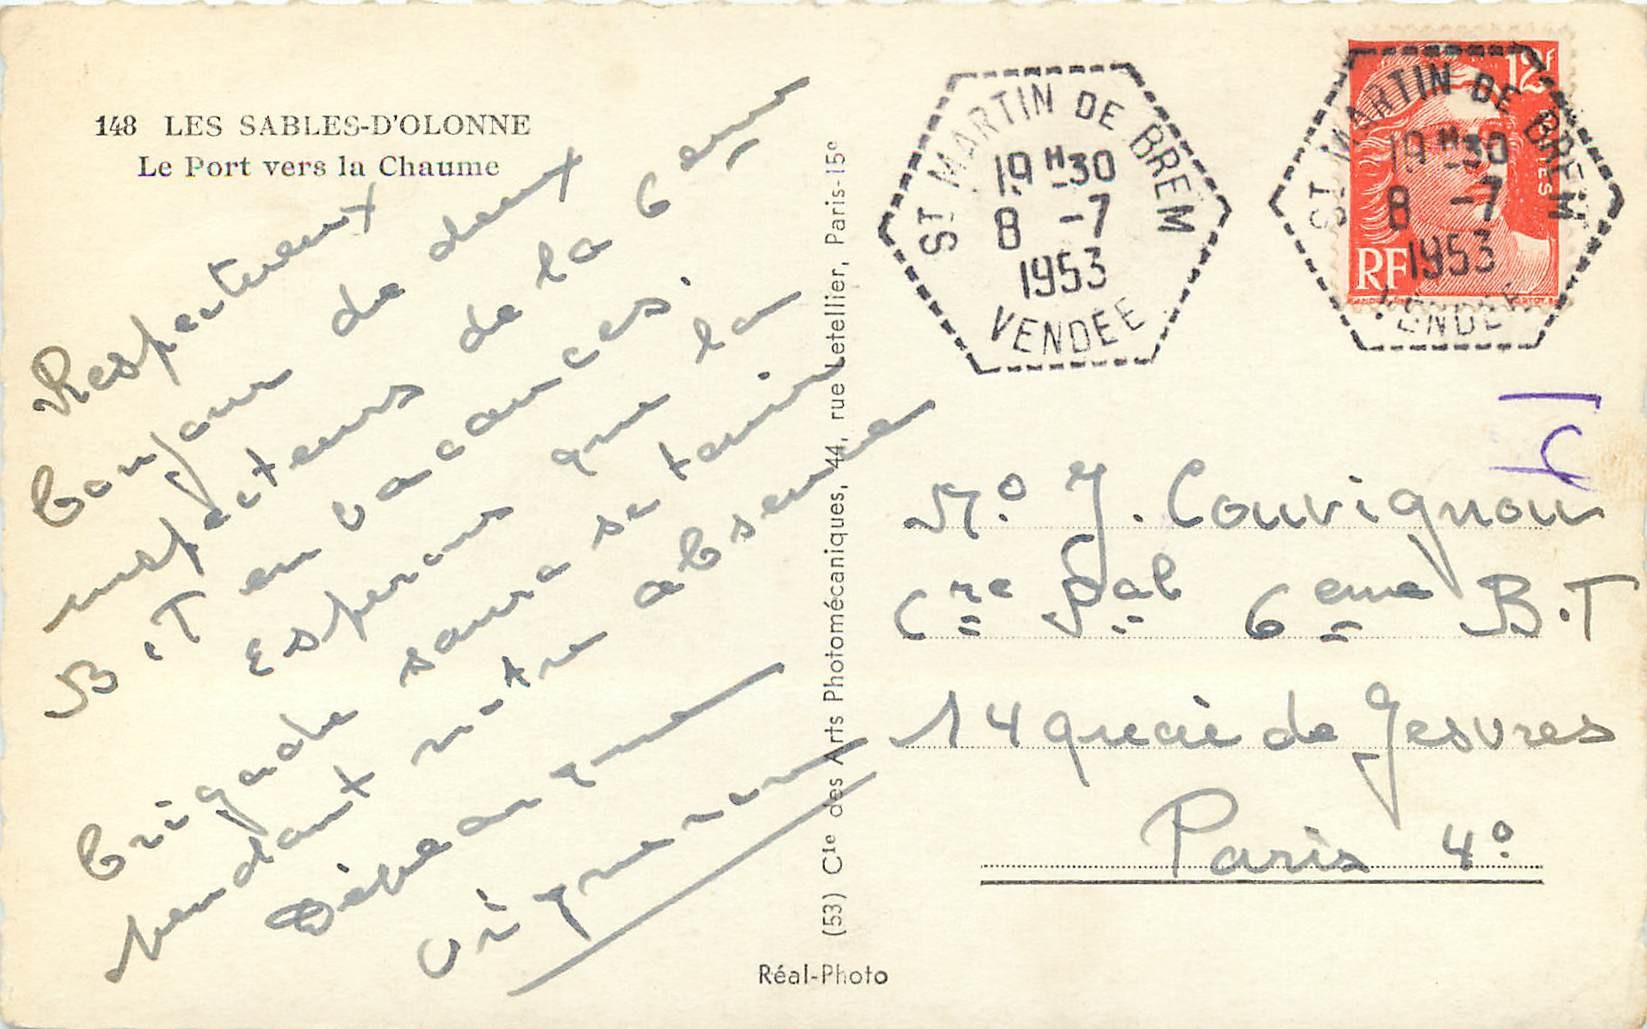 148 LES SABLES-D'OLONNE
Le Port vers la Chaume
Respectueux
bonjour de deux
inspecteurs de la 6eme
B.T en vacances.
Esperons que la
brigade saura se tenir
pendant notre absence
(53) Cie des Arts Photomécaniques, 44, rue Letellier, Paris-15e
Réal-Photo
ST MARTIN DE BREM
19 H 30
8 -7
1953
VENDÉE
12F
POSTES
RF
ST MARTIN DE BREM
19 H 30
8 -7
1953
VENDÉE
Mo. J. Couvignou
Cre Pal 6eme B.T
14 quai de Gesvres
Paris 4o